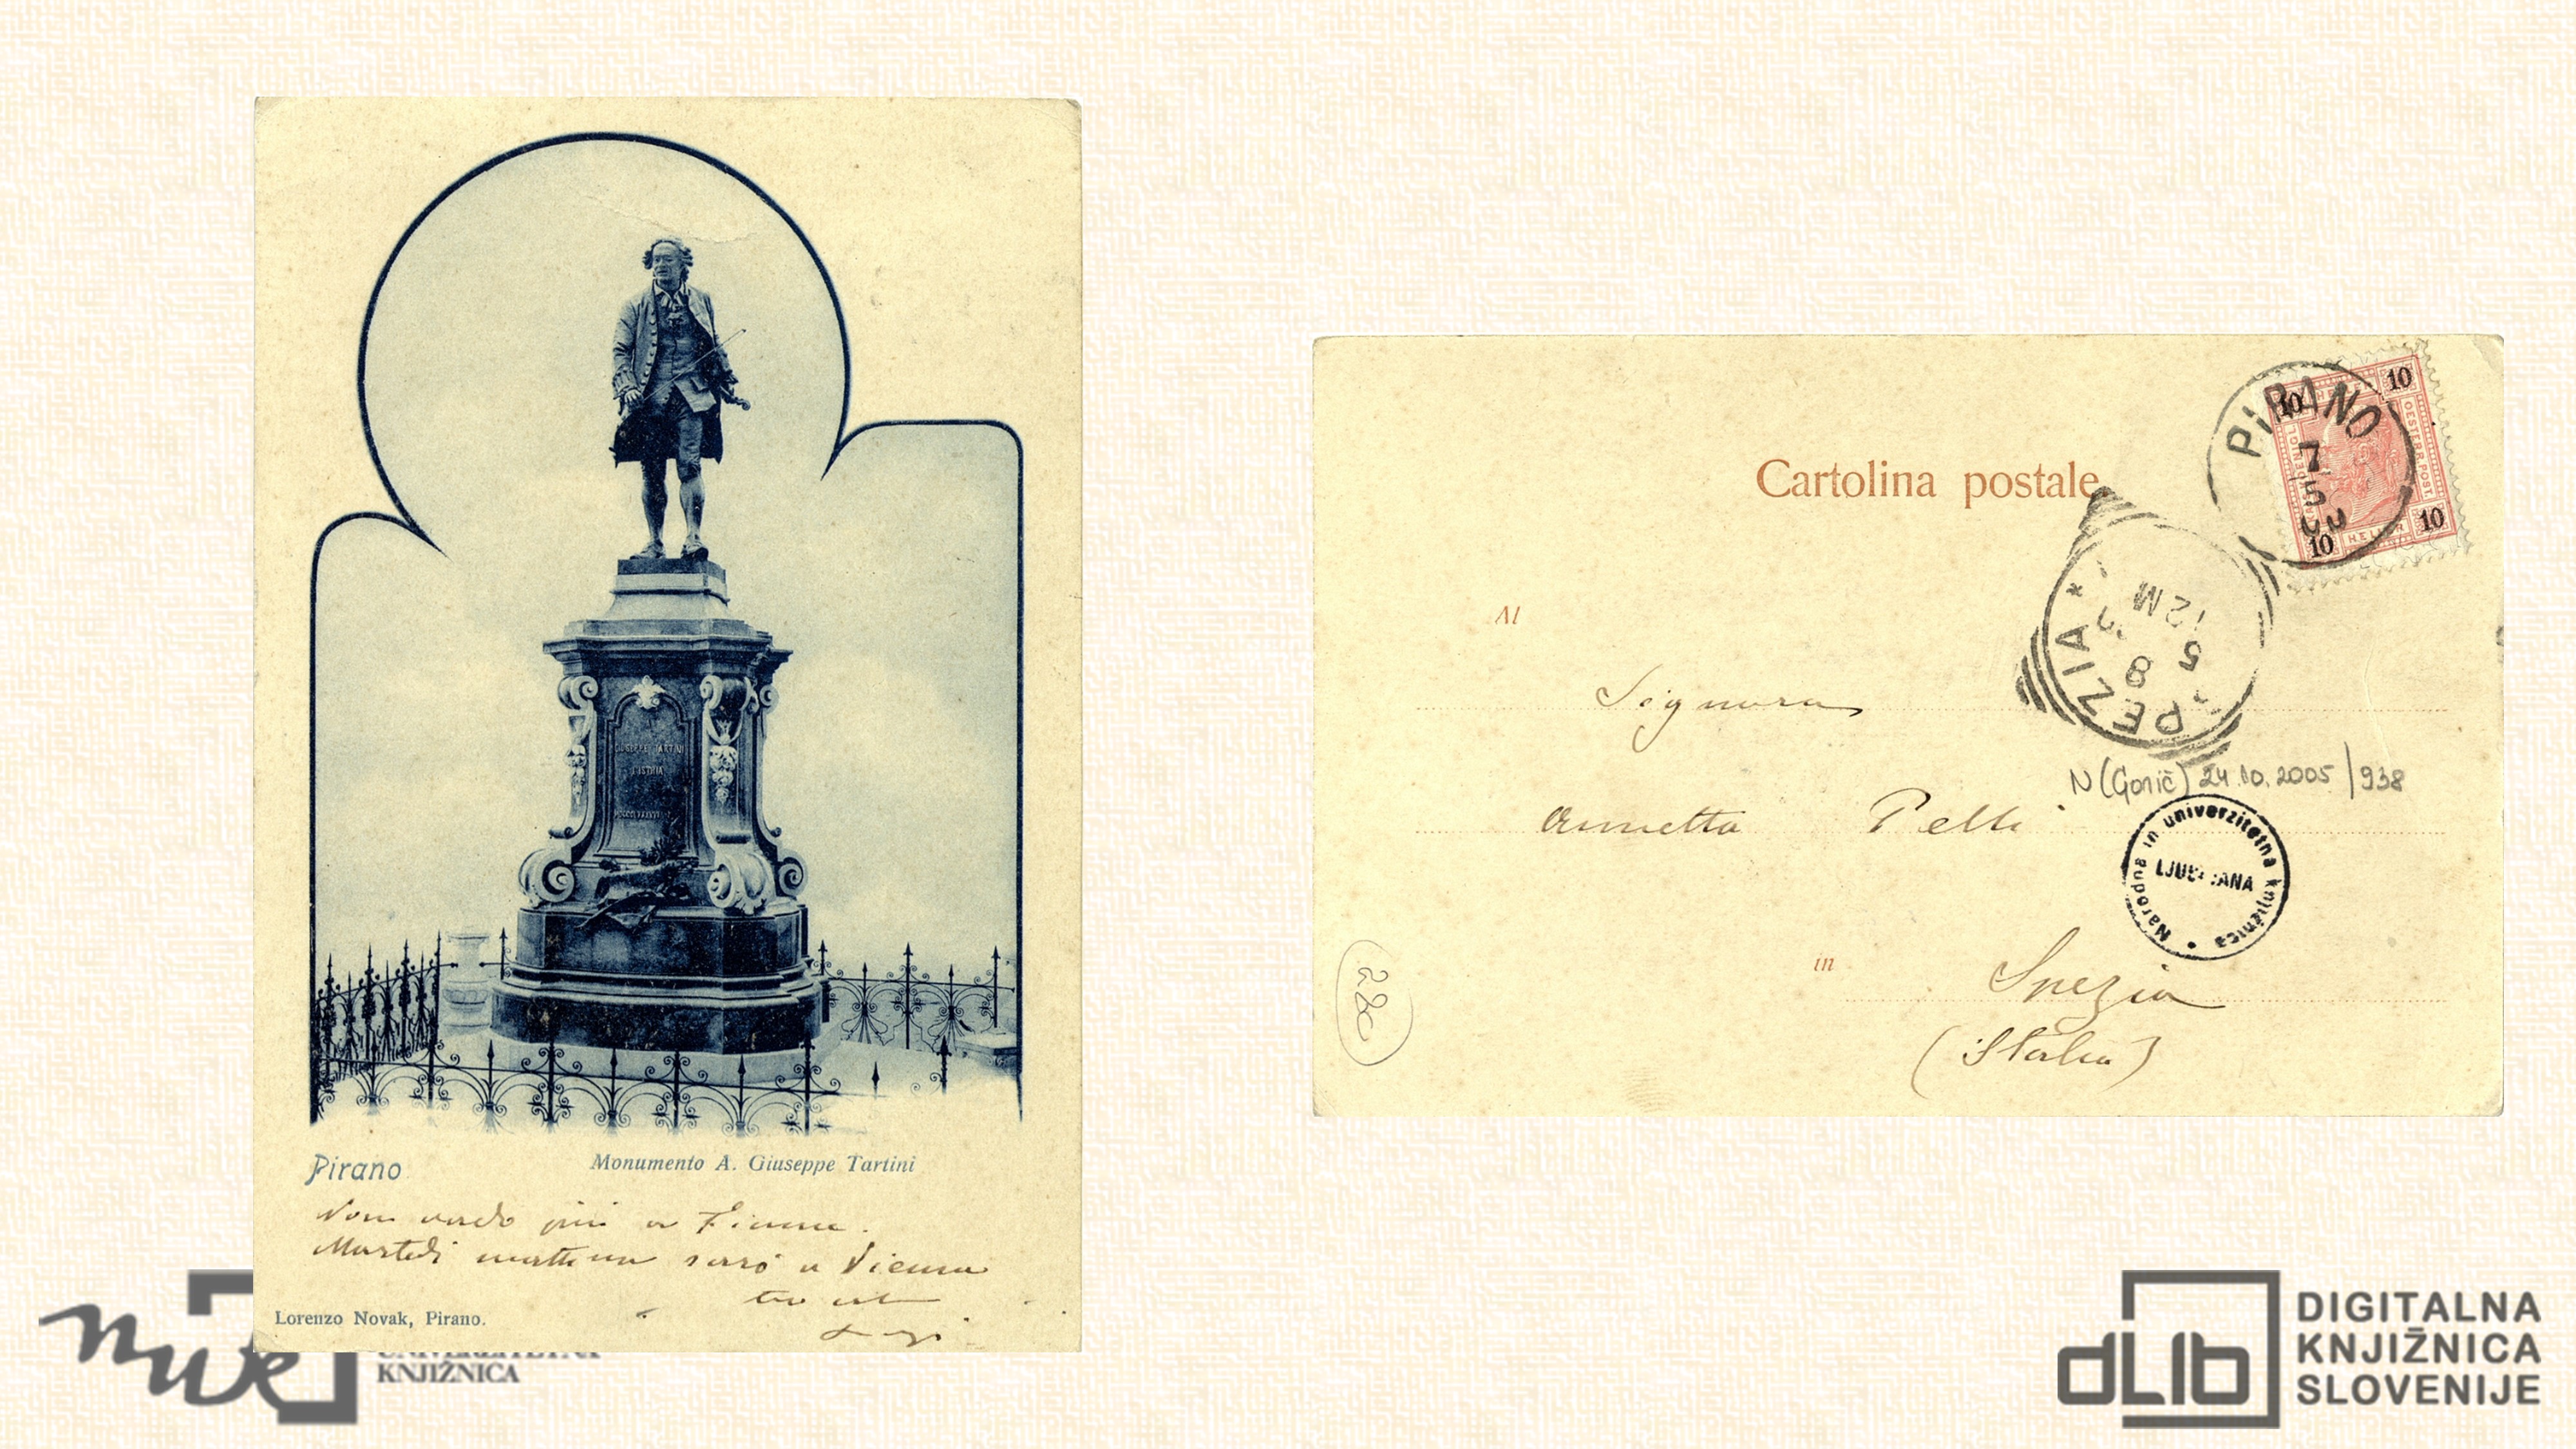 GIUSEPPE TARTINI
L'ISTRIA
MDCCCLXXXXVI
Pirano
Monumento A. Giuseppe Tartini
Non vado più a Fiume.
Martedì mattina sarò a Vienna
tuo
Lorenzo Novak, Pirano.
KNJIŽNICA
Cartolina postale
PIRANO
7
5
10
10
10
10
OESTERR. POST.
HELLER
SPEZIA *
12 M
5
8
Al
Signora
Annetta Pelli
N (Gorič) 24.10.2005/938
Narodna in univerzitetna knjižnica •
LJUBLJANA
in
Spezia
(Italia)
DIGITALNA
KNJIŽNICA
SLOVENIJE
dLib